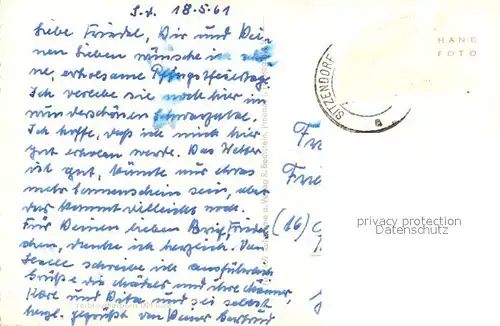 S.d. 18.5.61
Liebe Friedel, Dir und Dei-
nen Lieben wünsche ich schö-
ne, erholsame Pfingstfeiertage.
Ich verlebe sie noch hier im
wunderschönen Schwarzatal.
Ich hoffe, daß ich mich hier
gut erholen werde. Das Wetter
ist gut, könnte nur etwas
mehr Sonnenschein sein, aber
das kommt vielleicht noch.
Für Deinen lieben Brief, Friedel-
chen, danke ich herzlich. Von
schreibe ich ausführlich
Grüße die und ihre Männer,
Käre und und sei selbst
herzl. gegrüßt von Deiner Gertrud
HANG
FOTO
SITZENDORF
a
Fr
Frie
(16)
privacy protection
Datenschutz